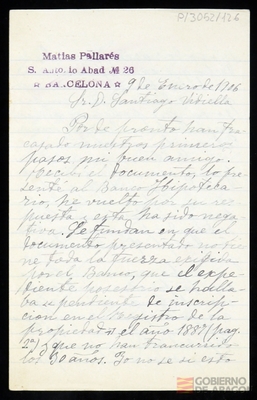 P/3052/126
Matías Pallarés
S. Antonio Abad № 26
BARCELONA
9 de Enero de 1906
Sr. D. Santiago Vidiella
Por de pronto han fra
casado nuestros primeros
pasos, mi buen amigo.
Recibí el documento, lo pre
senté al Banco Hipoteca
rio, he vuelto por su res
puesta y esta ha sido nega
tiva. Se fundan en que el
documento presentado no tie
ne toda la fuerza exigida
por el Banco, que el expe
diente posesorio se halla
ba pendiente de inscrip
cion en el Registro de la
propiedad en el año 1887 (pag.
2ª) y que no han transcurrido
los 20 años. Yo no se si esto
GOBIERNO
DE ARAGON